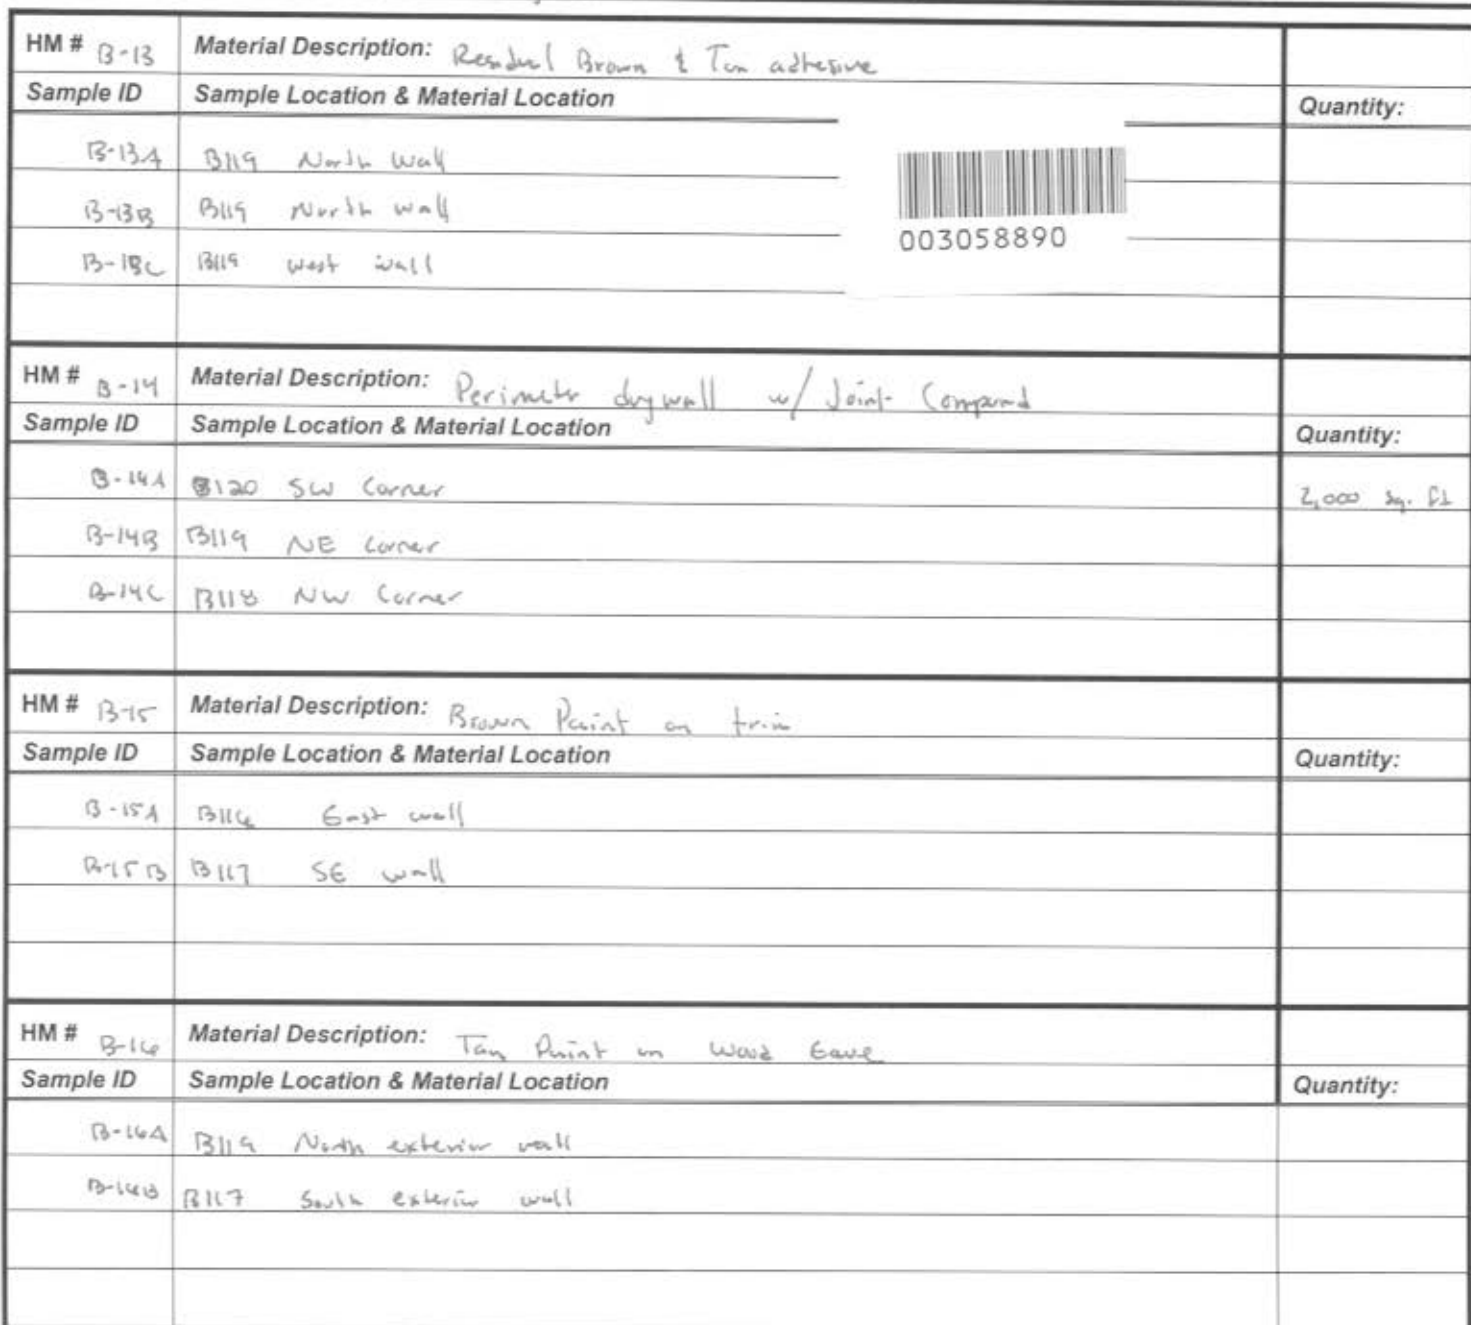 HM # B-13 Material Description: Residual Brown & Tan adhesive
Sample ID Sample Location & Material Location Quantity:
B-13A B119 North Wall
B-13B B119 North wall
003058890
B-13C B119 west wall
HM # B-14 Material Description: Perimeter drywall w/ Joint Compound
Sample ID Sample Location & Material Location Quantity:
B-14A B120 SW Corner 2,000 sq. ft
B-14B B119 NE Corner
B-14C B118 NW Corner
HM # B-15 Material Description: Brown Paint on trim
Sample ID Sample Location & Material Location Quantity:
B-15A B116 East wall
B-15B B117 SE wall
HM # B-16 Material Description: Tan Paint on Wood Eave
Sample ID Sample Location & Material Location Quantity:
B-16A B119 North exterior wall
B-16B B117 South exterior wall